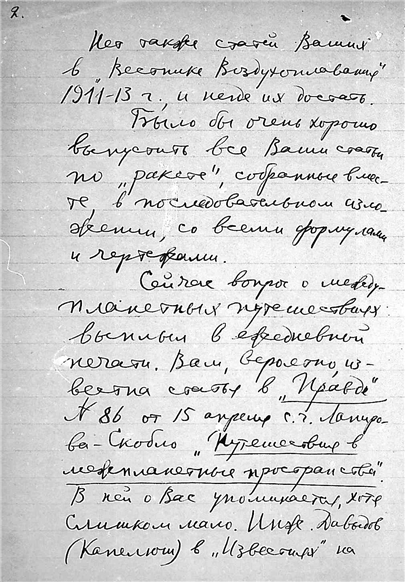 2.
Нет также статей Ваших
в „Вестнике Воздухоплавания“
1911-13 г., и негде их достать.
Было бы очень хорошо
выпустить все Ваши статьи
по „ракете“, собранные вмес-
те в последовательном изло-
жении, со всеми формулами
и чертежами.
Сейчас вопрос о между-
планетных путешествиях
выплыл в ежедневной
печати. Вам, вероятно, из-
вестна статья в „Правде“
№ 86 от 15 апреля с.г. Лапиро-
ва-Скобло „Путешествия в
межпланетные пространства“.
В ней о Вас упоминается, хотя
слишком мало. Инж. Давыдов
(Капелюш) в „Известиях“ на